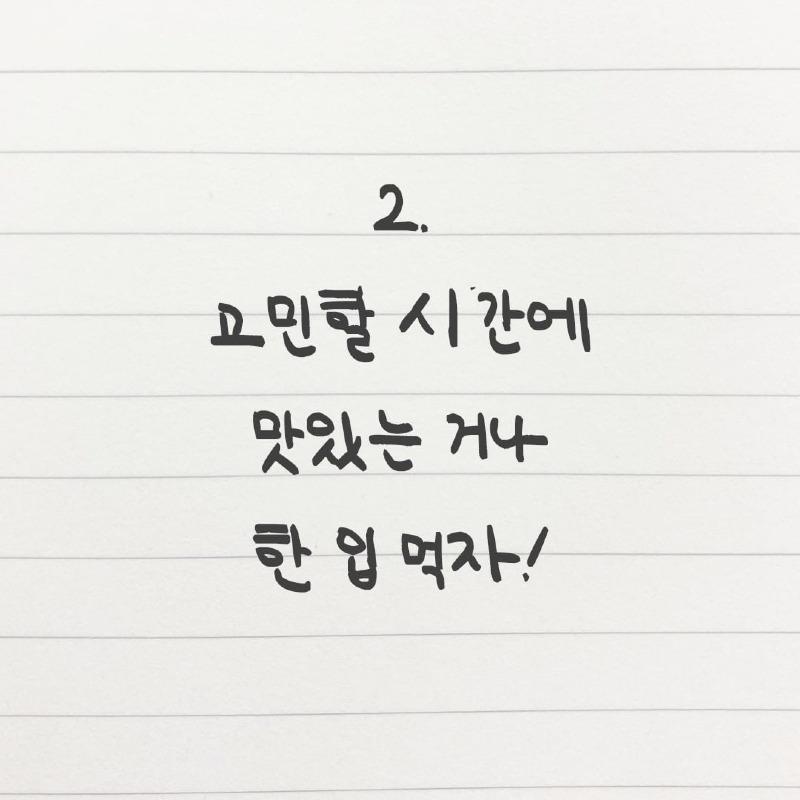 2.
고민할 시간에
맛있는 거나
한 입 먹자!